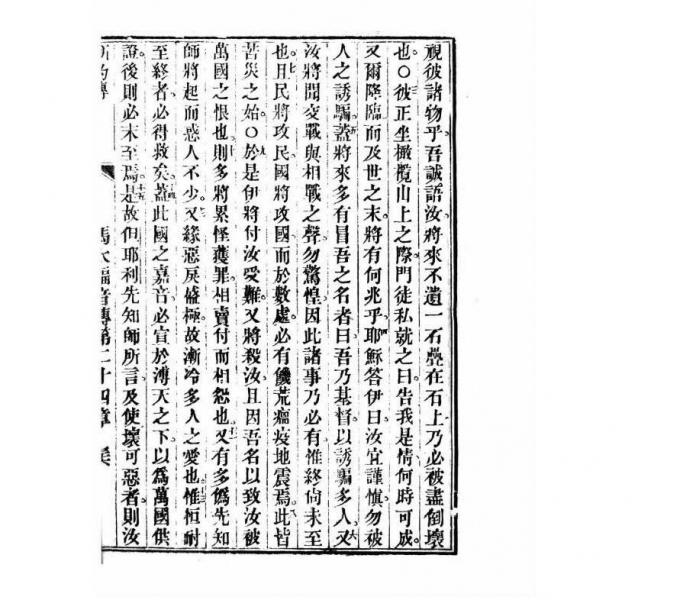 視彼諸物乎。吾誠語汝、將來不遺一石疊在石上、乃必被盡倒壞
也。○彼正坐橄欖山上之際、門徒私就之曰、告我是情何時可成。
又爾降臨而及世之末、將有何兆乎。耶穌答伊曰、汝宜謹慎、勿被
人之誘騙。蓋將來多有冒吾之名者、曰、吾乃基督、以誘騙多人。又
汝將聞交戰與相戰之聲、勿驚惶、因此諸事乃必有、惟終尚未至
也。且民將攻民、國將攻國、而於數處必有饑荒瘟疫地震焉。此皆
苦災之始。○於是伊將付汝受難、又將殺汝、且因吾名以致汝被
萬國之恨也。則多將累怪獲罪、相賣付而相怨也。又有多偽先知
師將起而惑人不少。又緣惡戾盛極、故漸冷多人之愛也。惟恒耐
至終者、必得救矣。蓋此國之嘉音、必宣於溥天之下、以為萬國供
證、後則必末至焉。是故但耶利先知師所言、及使壞可惡者、則汝
馬太福音傳第二十四章